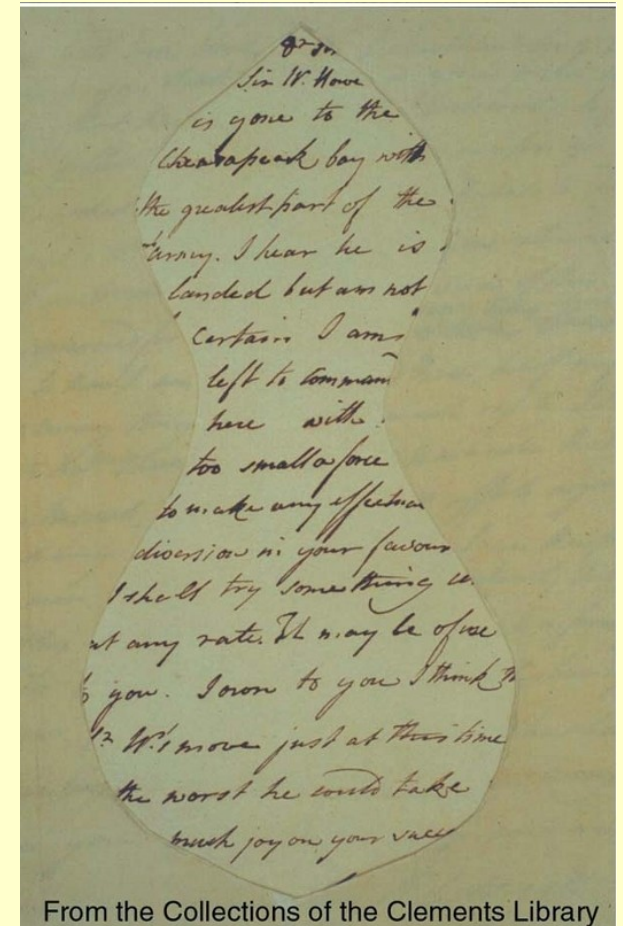 Sir. W. Howe
is gone to the
Chesapeak bay with
the greatest part of the
army. I hear he is
landed but am not
certain I am
left to comman
here with
too small a force
to make any effectua
diversion in your favour
I shall try something
at any rate. It may be of use
to you. I own to you I think
Sr W's move just at this time
the worst he could take
much joy on your succ
From the Collections of the Clements Library